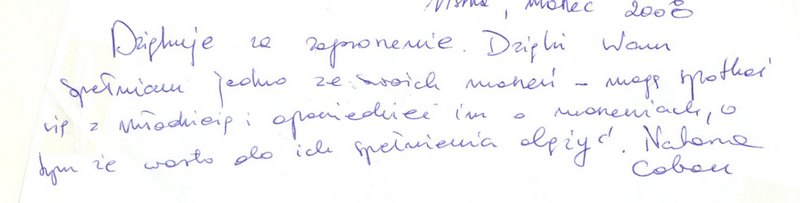 , marzec 2008
Dziękuję za zaproszenie. Dzięki Wam
spełniam jedno ze swoich marzeń – mogę spotkać
się z młodzieżą i opowiedzieć im o marzeniach, o
tym że warto do ich spełnienia dążyć. Natasza
Caban